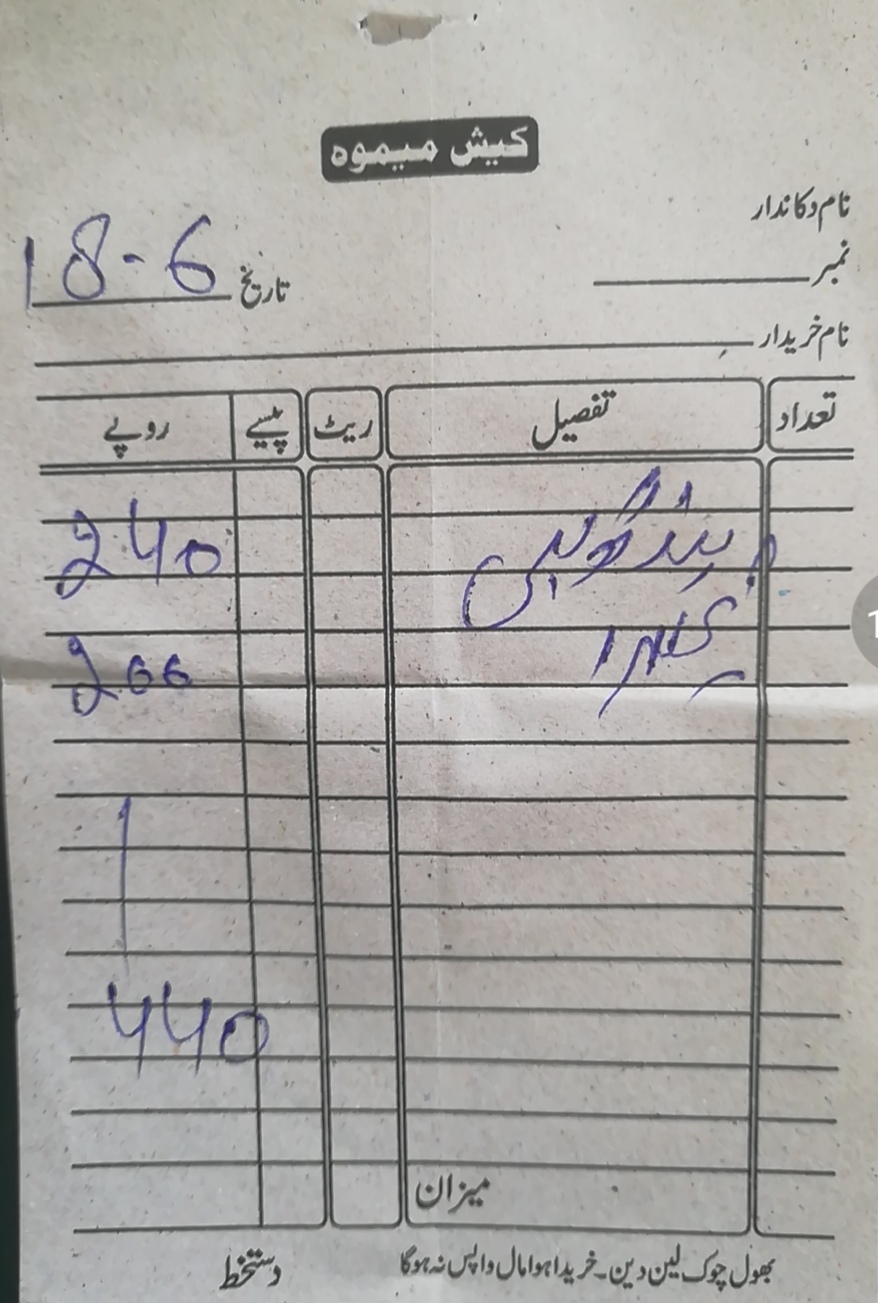 کیش میمورہ
نام دکاندار
نمبر
تاریخ 18-6
نام خریدار
تعداد تفصیل ریٹ پیسے روپے
240
200
440
میزان
بھول چوک لین دین۔ خریدا ہوا مال واپس نہ ہوگا
دستخط